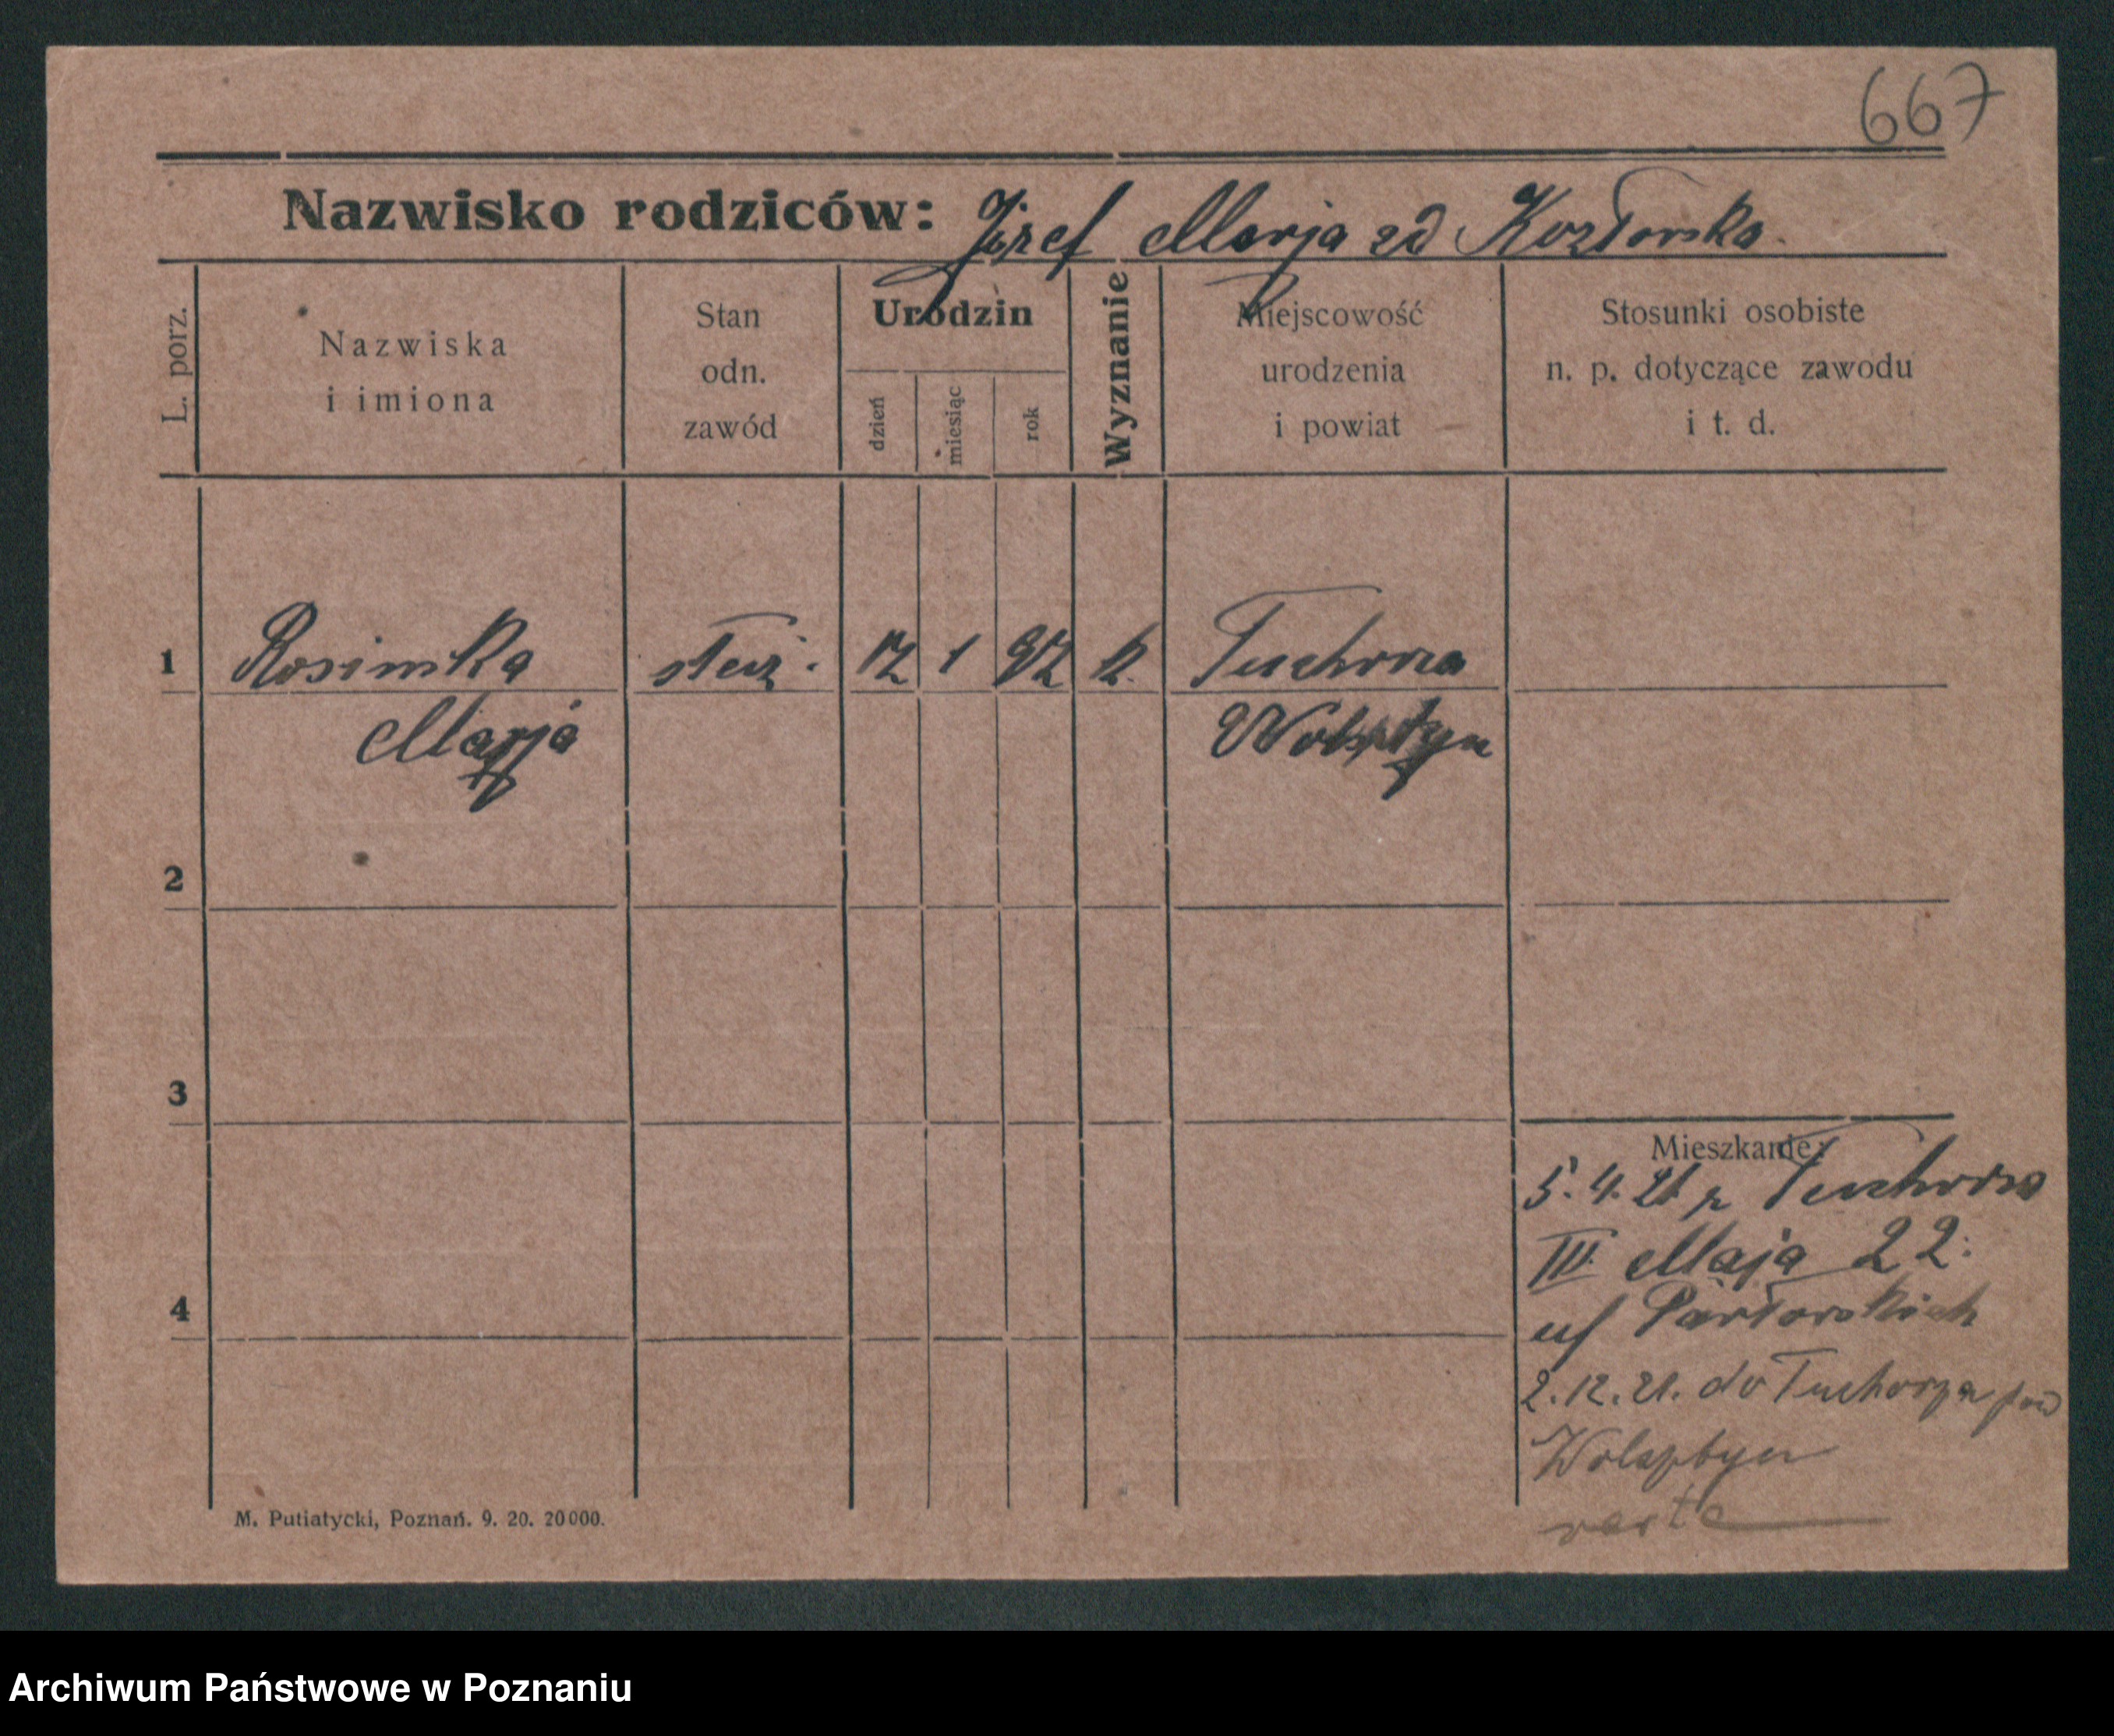 667
Nazwisko rodziców: Józef Marja zd Kozłowska.
L. porz.
Nazwiska
i imiona
Stan
odn.
zawód
Urodzin
dzień
miesiąc
rok
Wyznanie
Miejscowość
urodzenia
i powiat
Stosunki osobiste
n. p. dotyczące zawodu
i t. d.
1 Rosinska służ. 12 1 92 k. Tuchorza
Marja Wolsztyn
2
3
Mieszkanie:
5. 4. 21. z Tuchorza
III Maja 22.
4
2. 12. 21. do Tuchorza pow
Wolsztyn
M. Putiatycki, Poznań. 9. 20. 20000.
Archiwum Państwowe w Poznaniu